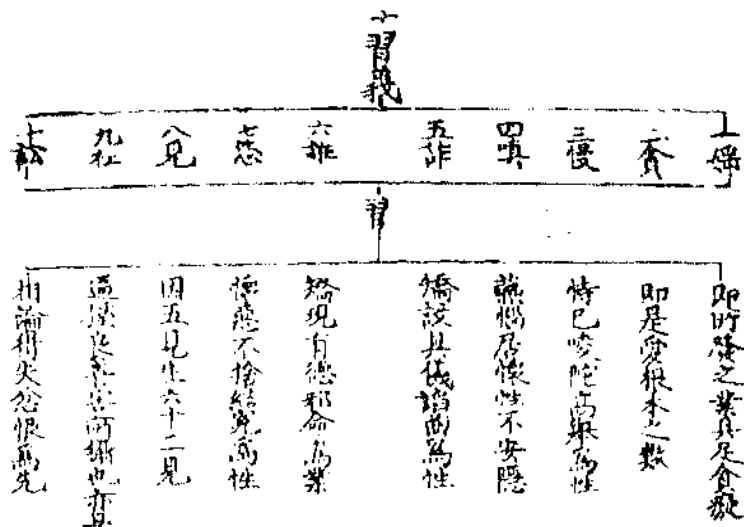 十習義
一婬
二貪
三慢
四嗔
五詐
六誑
七怨
八見
九枉
十訟
習
即所發之業具足貪癡
即是愛根本之數
恃己凌陀高舉為性
惱居懷性不安隱
矯設具儀諂曲為性
矯現有德邪命為業
懷惡不捨結冤為性
因五見生六十二見
逼壓良善害所攝也亦是
相論得失忿恨為先